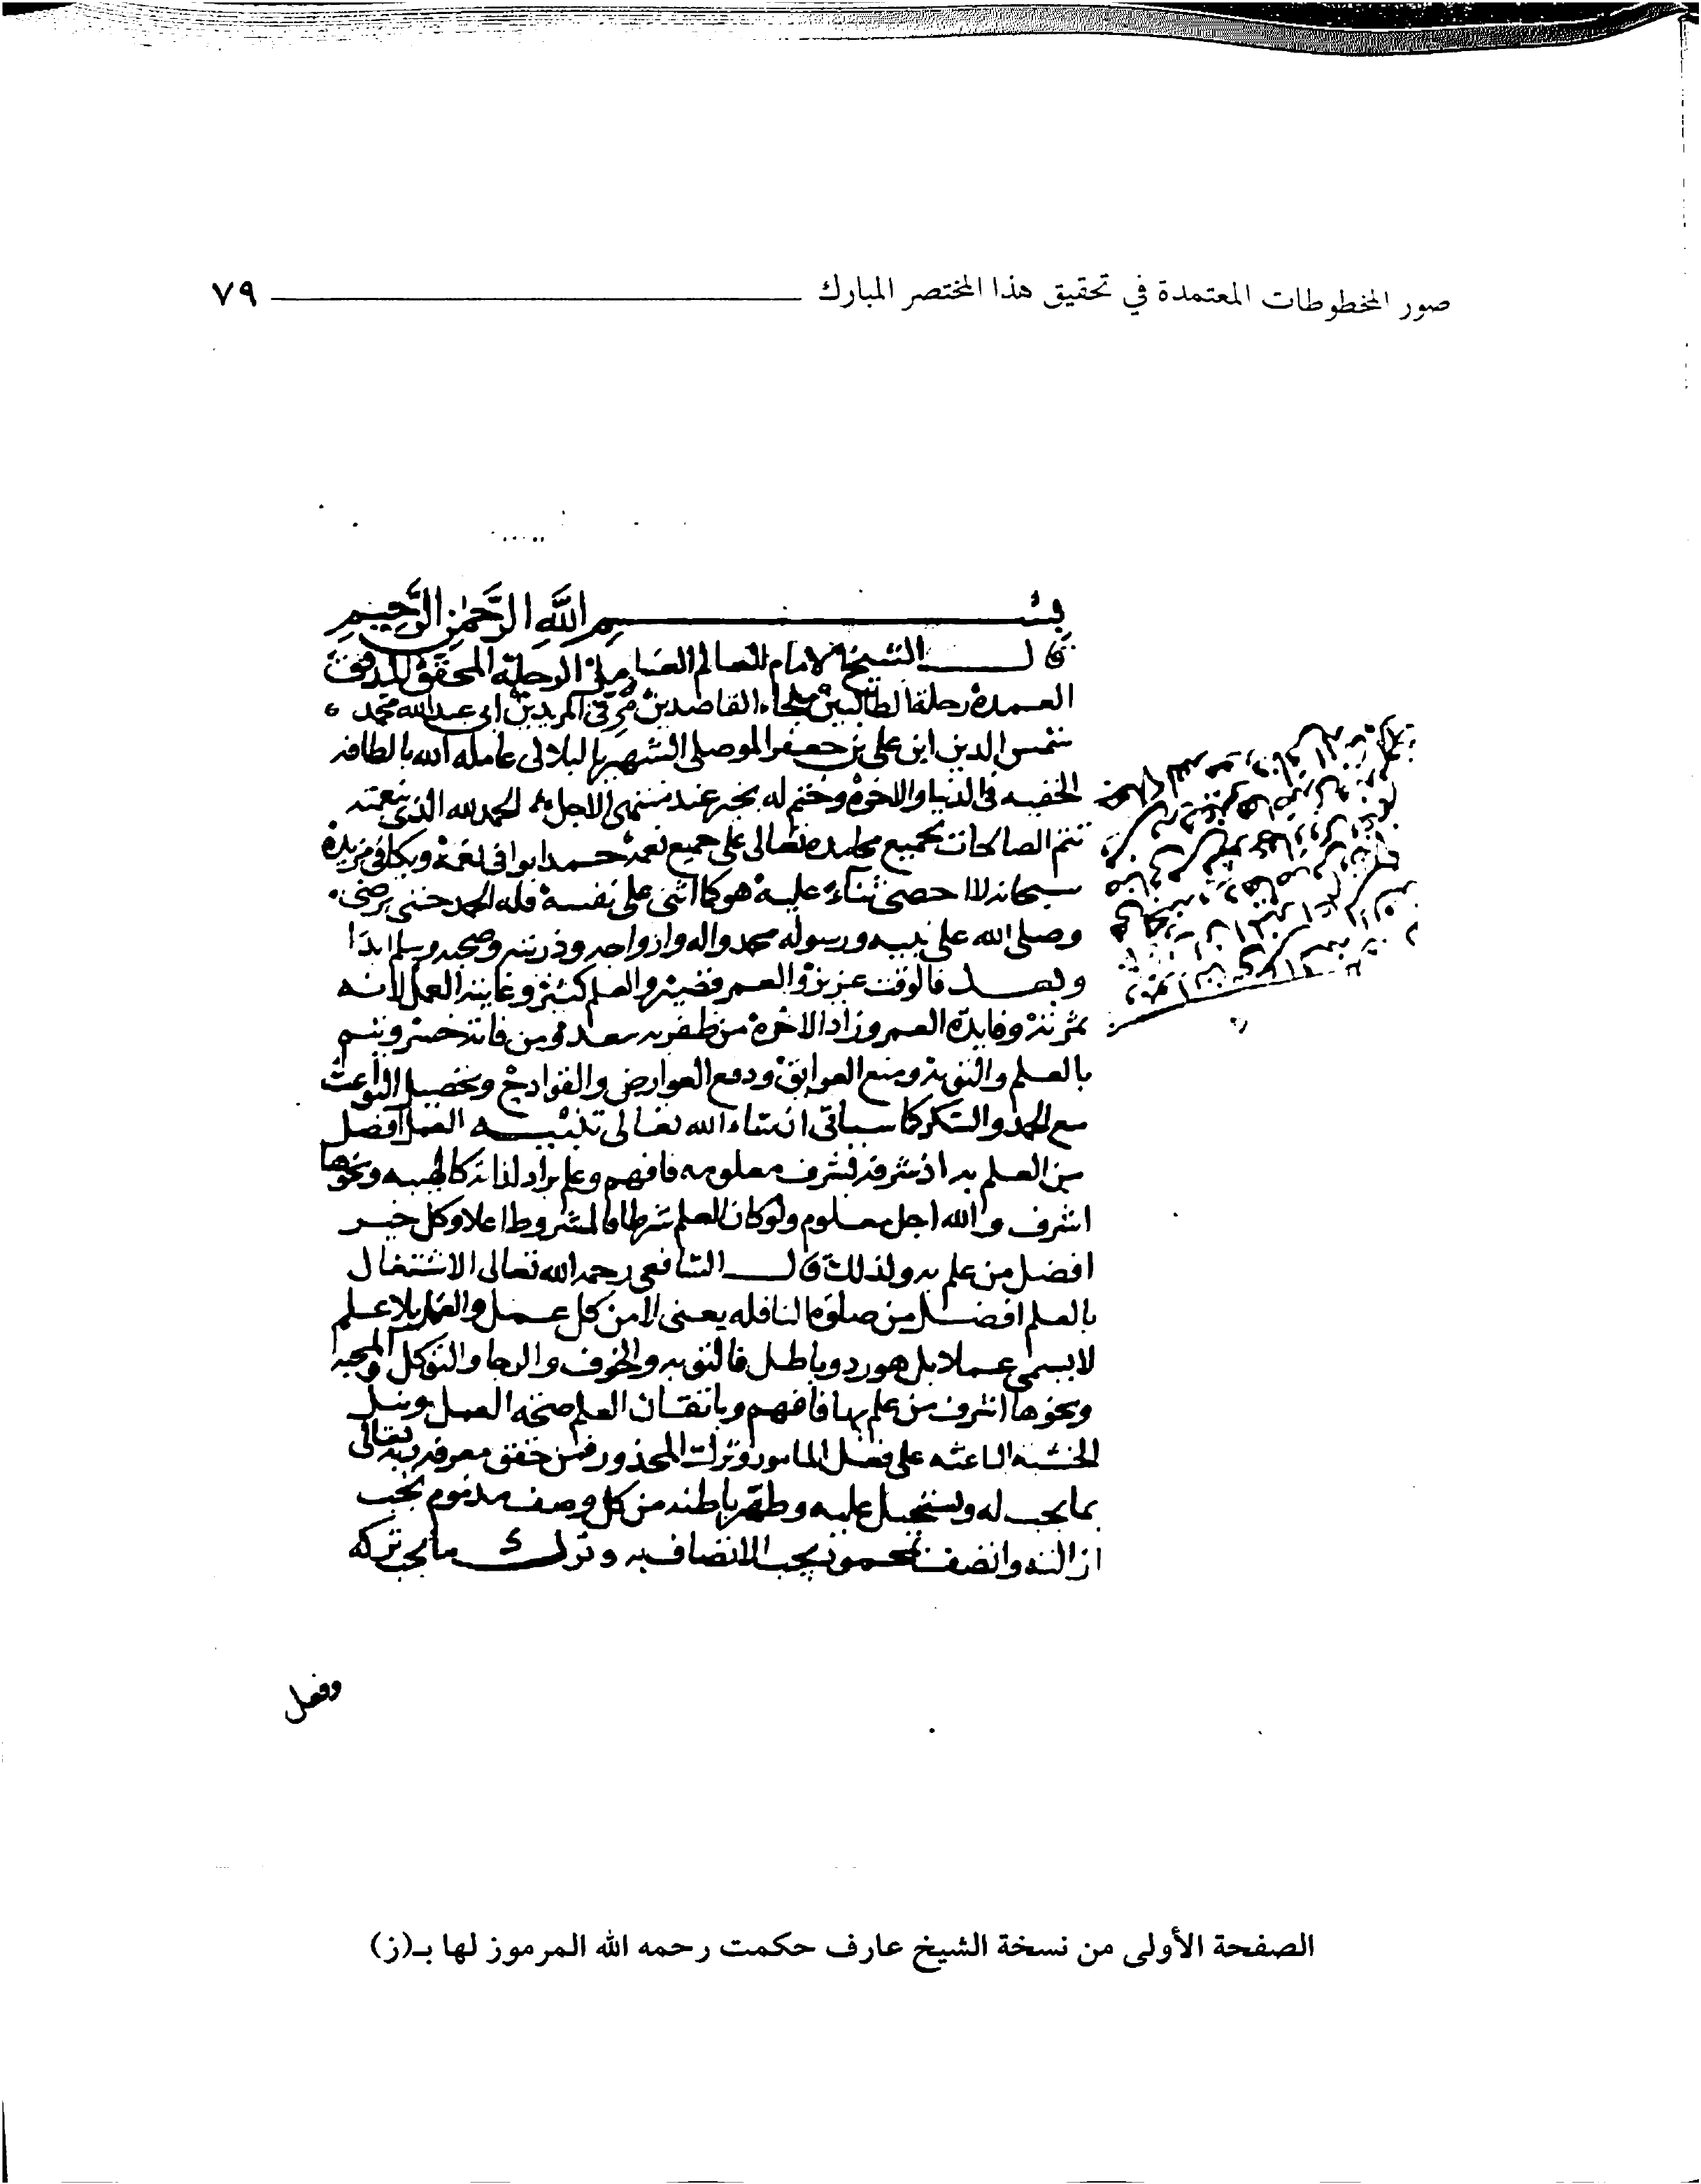 صور المخطوطات المعتمدة في تحقيق هذا المختصر المبارك ٧٩
بسم الله الرحمن الرحيم
قال الشيخ الامام العالم العامل الرحلة المحقق المدقق
العمدة رحلة الطالبين ملجاء القاصدين مرقى المريدين ابى عبدالله محمد
شمس الدين ابن على بن جعفر الموصلى الشهير بالبلالى عامله الله بالطافه
الخفيه فى الدنيا والاخرة وختم له بخير عند منتهى الاجل الحمد لله الذى بنعمته
تتم الصالحات بجميع محامده تعالى على جميع نعمه حمدا يوافى نعمه ويكافى مزيده
سبحانه لا احصى ثناء عليه هو كما اثنى على نفسه فله الحمد حتى يرضى
وصلى الله على نبيه ورسوله محمد واله وازواجه وذريته وصحبه وسلم ابدا
وبعد فالوقت عزيز والعمر قصير والعلم كثير وغايته العمل لانه
ثمرته وفايدة العمر وزاد الاخرة من ظفر به سعد ومن فاته خسر ويتم
بالعلم والتوبة ومنع العوايق ودفع العوارض والقوادح وتحصيل البواعث
مع الحمد والشكر كما سياتى ان شاء الله تعالى تنبيه العمل افضل
من العلم به اذ شرفه لشرف معلومه فافهم وعلم يراد لذاته كالهيبه ونحوها
اشرف والله اجل معلوم ولو كان العلم شرطا فالمشروط اعلا وكل خير
افضل من علم به ولذلك قال الشافعى رحمه الله تعالى الاشتغال
بالعلم افضل من صلوة النافله يعنى لا من كل عمل والعمل بلا علم
لا يسمى عملا بل هو رد وباطل فالتوبه والخوف والرجا والتوكل والمحبه
ونحوها اشرف من علم بها فافهم وباتقان العلم صحة العمل ونيل
الخشية الباعثه على فعل المامور وترك المحذور فمن حقق معرفة ربه تعالى
بما يجب له ويستحيل عليه وطهر باطنه من كل وصف مذموم تجب
ازالته واتصف بمحمود يجب الاتصاف به وترك ما يجب تركه
وفعل
الصفحة الأولى من نسخة الشيخ عارف حكمت رحمه الله المرموز لها بـ(ز)